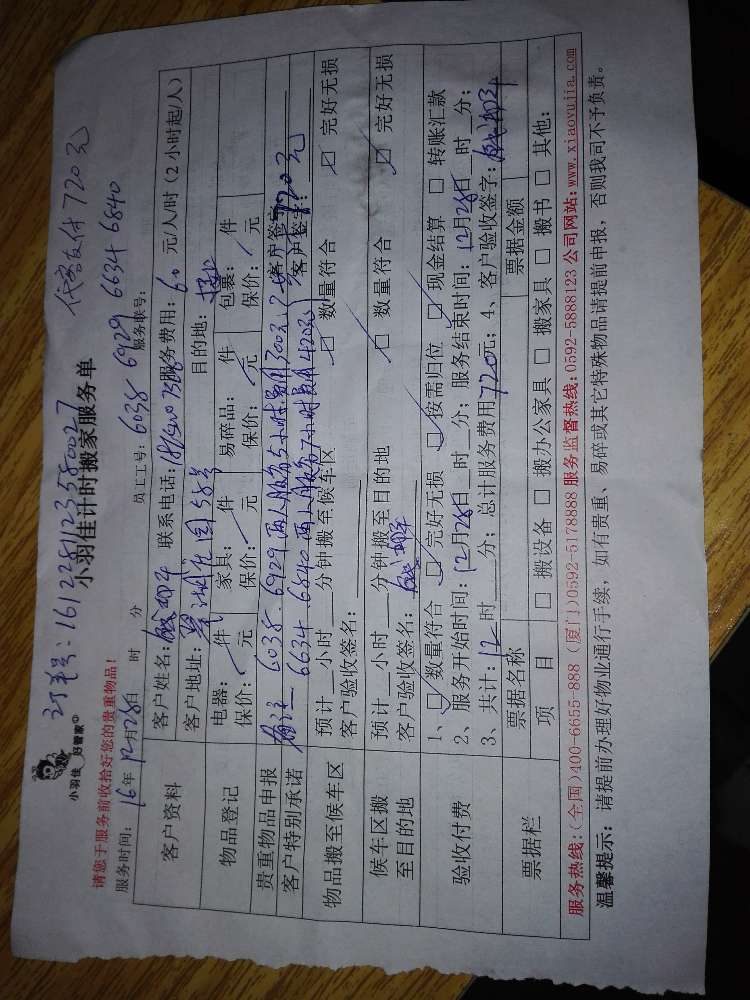 订单号：1612281123580027 代客支付720元
小羽佳 好管家
小羽佳计时搬家服务单
请您于服务前收拾好您的贵重物品！
员工工号：6038 6929 6634 6840
服务时间：16年12月28日 时 分 服务联号：
客户资料
客户姓名： 联系电话： 服务费用：60元/人/时（2小时起/人）
客户地址： 58号 目的地：
物品登记
电器： 件 家具： 件 易碎品： 件 包裹： 件
保价： 元 保价： 元 保价： 元 保价： 元
贵重物品申报 备注 6038.6929两人服务5小时 300元 客户签字：
客户特别承诺 6634.6840两人服务7小时 420元 720元 客户签字：
物品搬至候车区
预计 小时 分钟搬至候车区 □ 数量符合 □ 完好无损
客户验收签名：
候车区搬至目的地
预计 小时 分钟搬至目的地 □ 数量符合 □ 完好无损
客户验收签名：
验收付费
1、□ 数量符合 □ 完好无损 □ 按需归位 □ 现金结算 □ 转账汇款
2、服务开始时间：12月28日 时 分；服务结束时间：12月28日 时 分；
3、共计：12时 分；总计服务费用720元；4、客户验收签字：
票据栏
票据名称 票据金额
项目 □ 搬设备 □ 搬办公家具 □ 搬家具 □ 搬书 □ 其他：
服务热线：（全国）400-6655-888（厦门）0592-5178888 服务监督热线：0592-5888123 公司网站：www.xiaoyujia.com
温馨提示：请提前办理好物业通行手续，如有贵重、易碎或其它特殊物品请提前申报，否则我司不予负责。